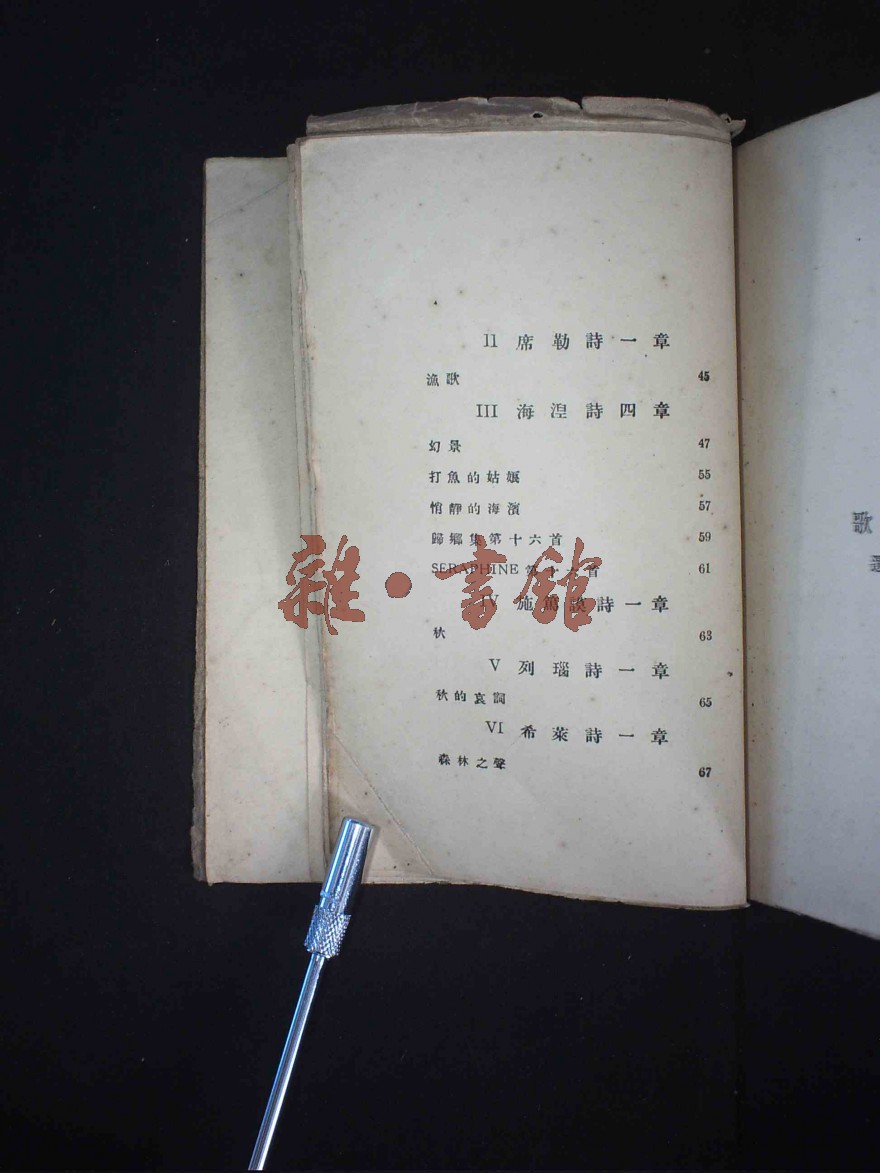 II 席勒詩一章
漁歌 45
III 海湼詩四章
幻景 47
打魚的姑娘 55
悄靜的海濱 57
歸鄉集第十六首 59
SERAPHINE 第十六首 61
IV 施篤謨詩一章
秋 63
V 列瑙詩一章
秋的哀詞 65
VI 希萊詩一章
森林之聲 67
歌
雜·書館